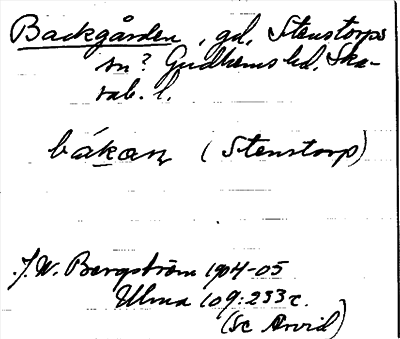 Backgården, gd, Stenstorps
sn? Gudhems hd, Ska-
rab. l.
båkan (Stenstorp)
J. W. Bergström 1904-05
Ulma 109:233 c.
(Sc Arvid)